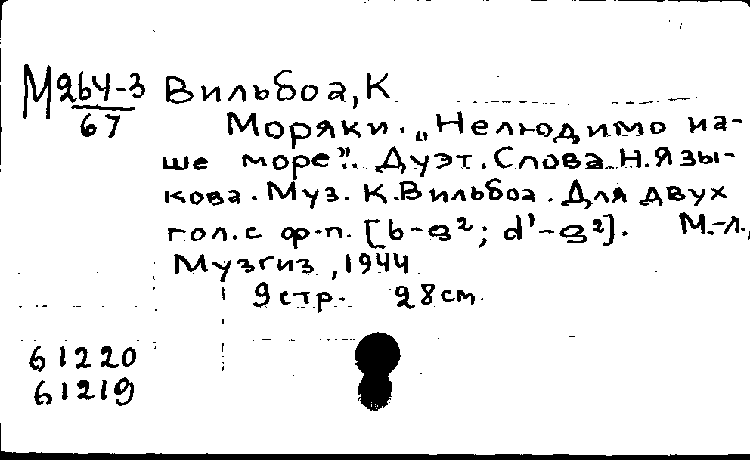 М264-3 Вильбоа, К
67
Моряки. „Нелюдимо на-
ше море". Дуэт. Слова Н. Язы-
кова. Муз. К. Вильбоа. Для двух
гол. с ф-п. [b-g²; d'-g²]. М.-Л.,
Музгиз, 1944
9 стр. 28 см
61220
61219